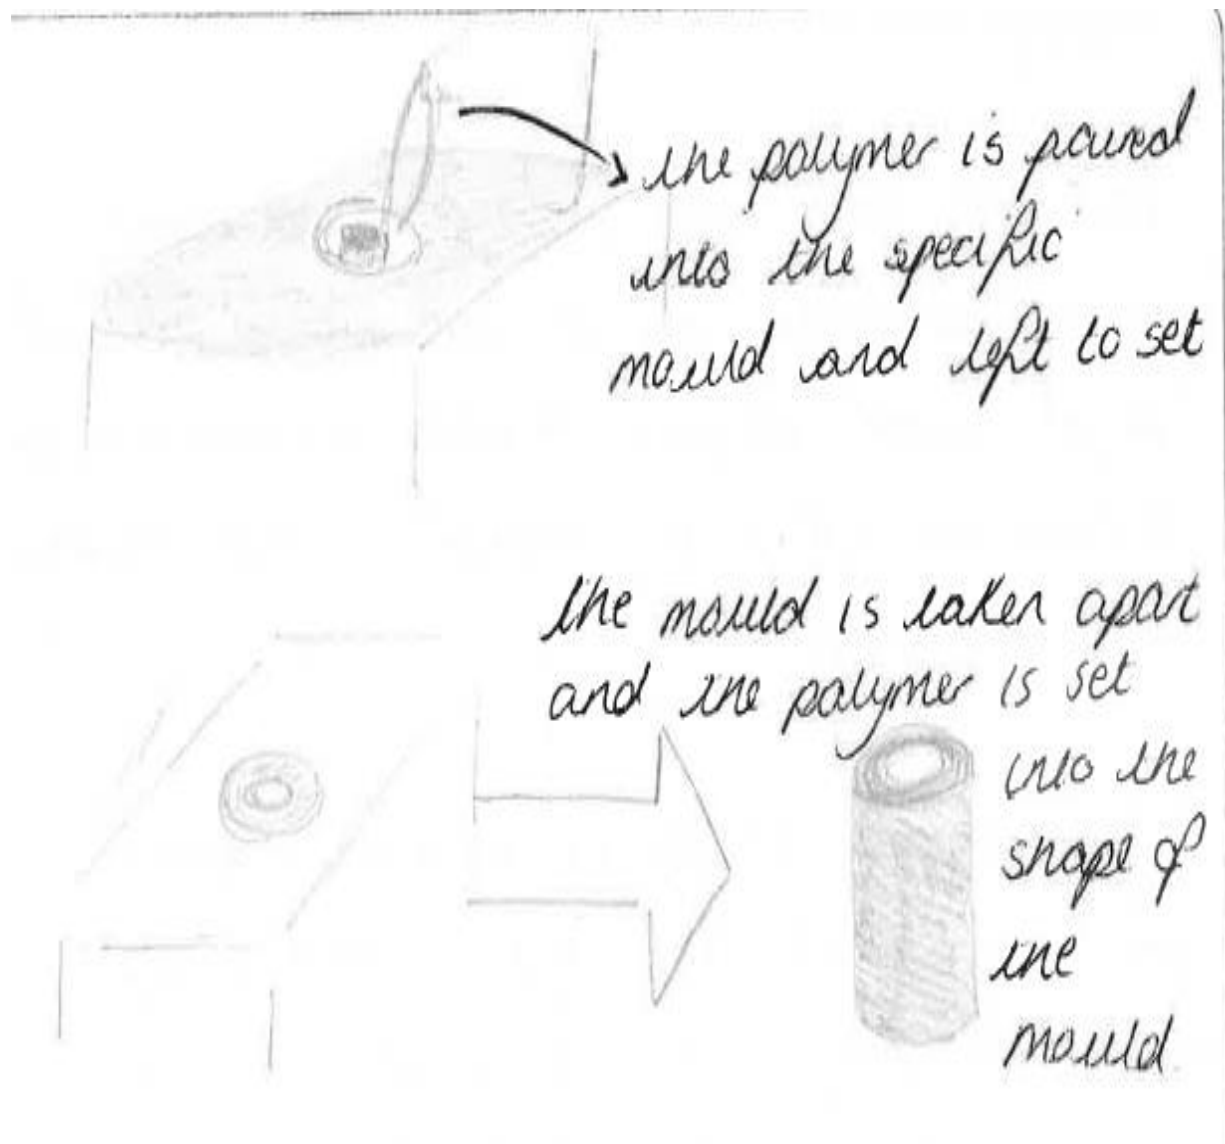 the polymer is poured
into the specific
mould and left to set
the mould is taken apart
and the polymer is set
into the
shape of
the
mould.